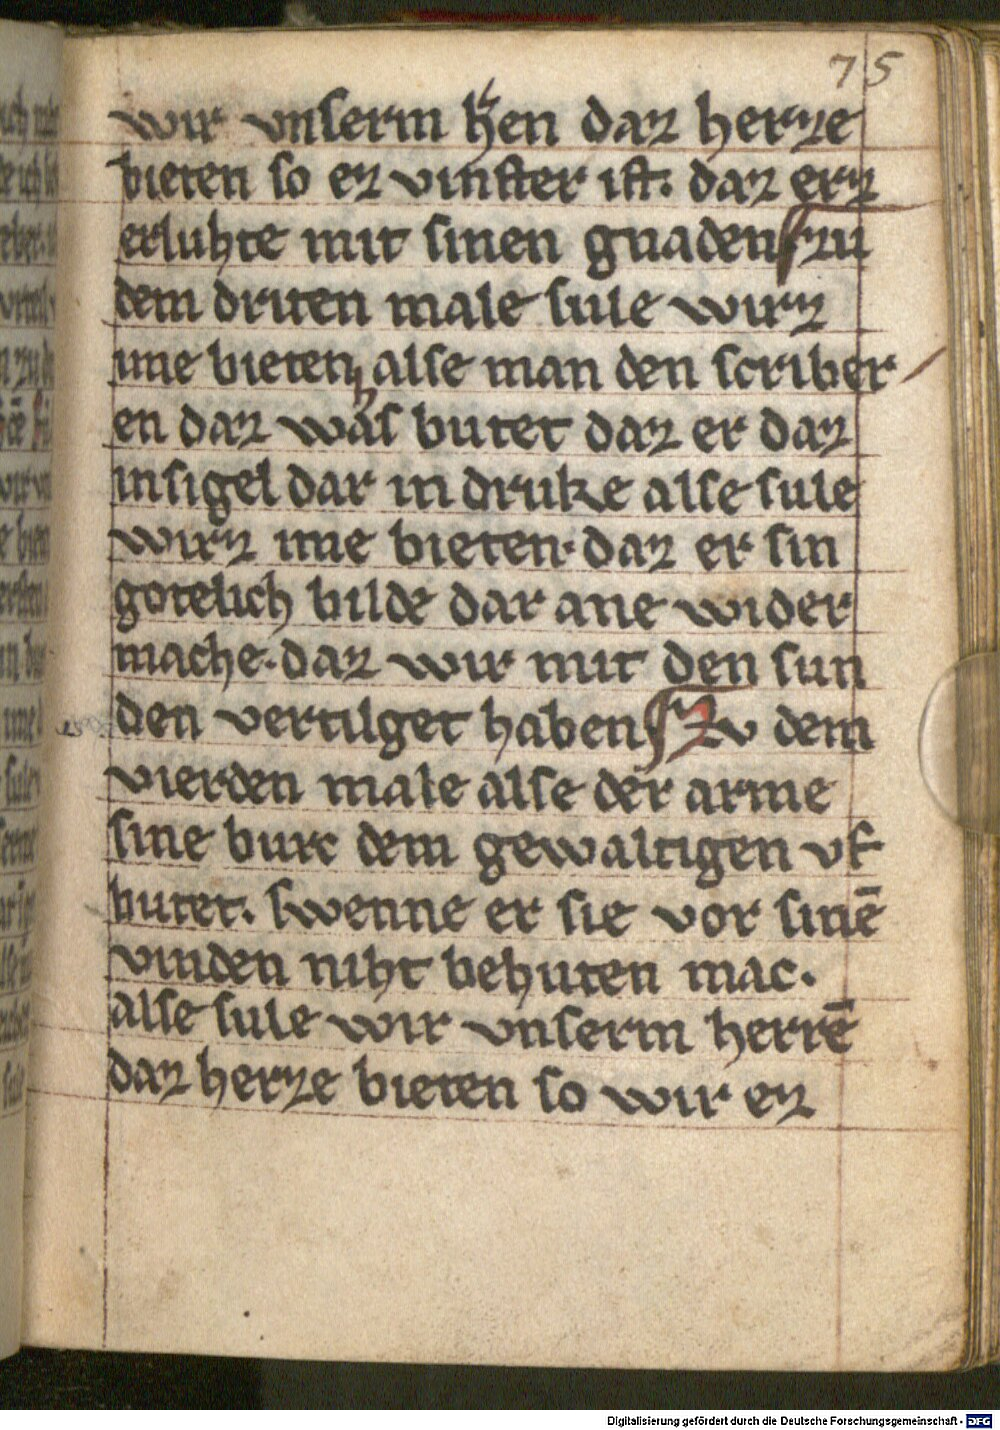 75
wir vnserm h̾en daz herze
bieten so ez vinster ist. daz erz
erluhte mit sinen gnaden zu
dem driten male sule wirz
ime bieten alse man den scriber
en daz wahs butet daz er daz
insigel dar in druke alse sule
wirz ime bieten. daz er sin
gotelich bilde dar ane wider
mache. daz wir mit den sun
den vertilget haben Zv dem
vierden male alse der arme
sine burc dem gewaltigen vf
butet. swenne er sie vor sinē
vinden niht behuten mac.
alse sule wir vnserm herrē
daz herze bieten so wir ez
Digitalisierung gefördert durch die Deutsche Forschungsgemeinschaft - DFG